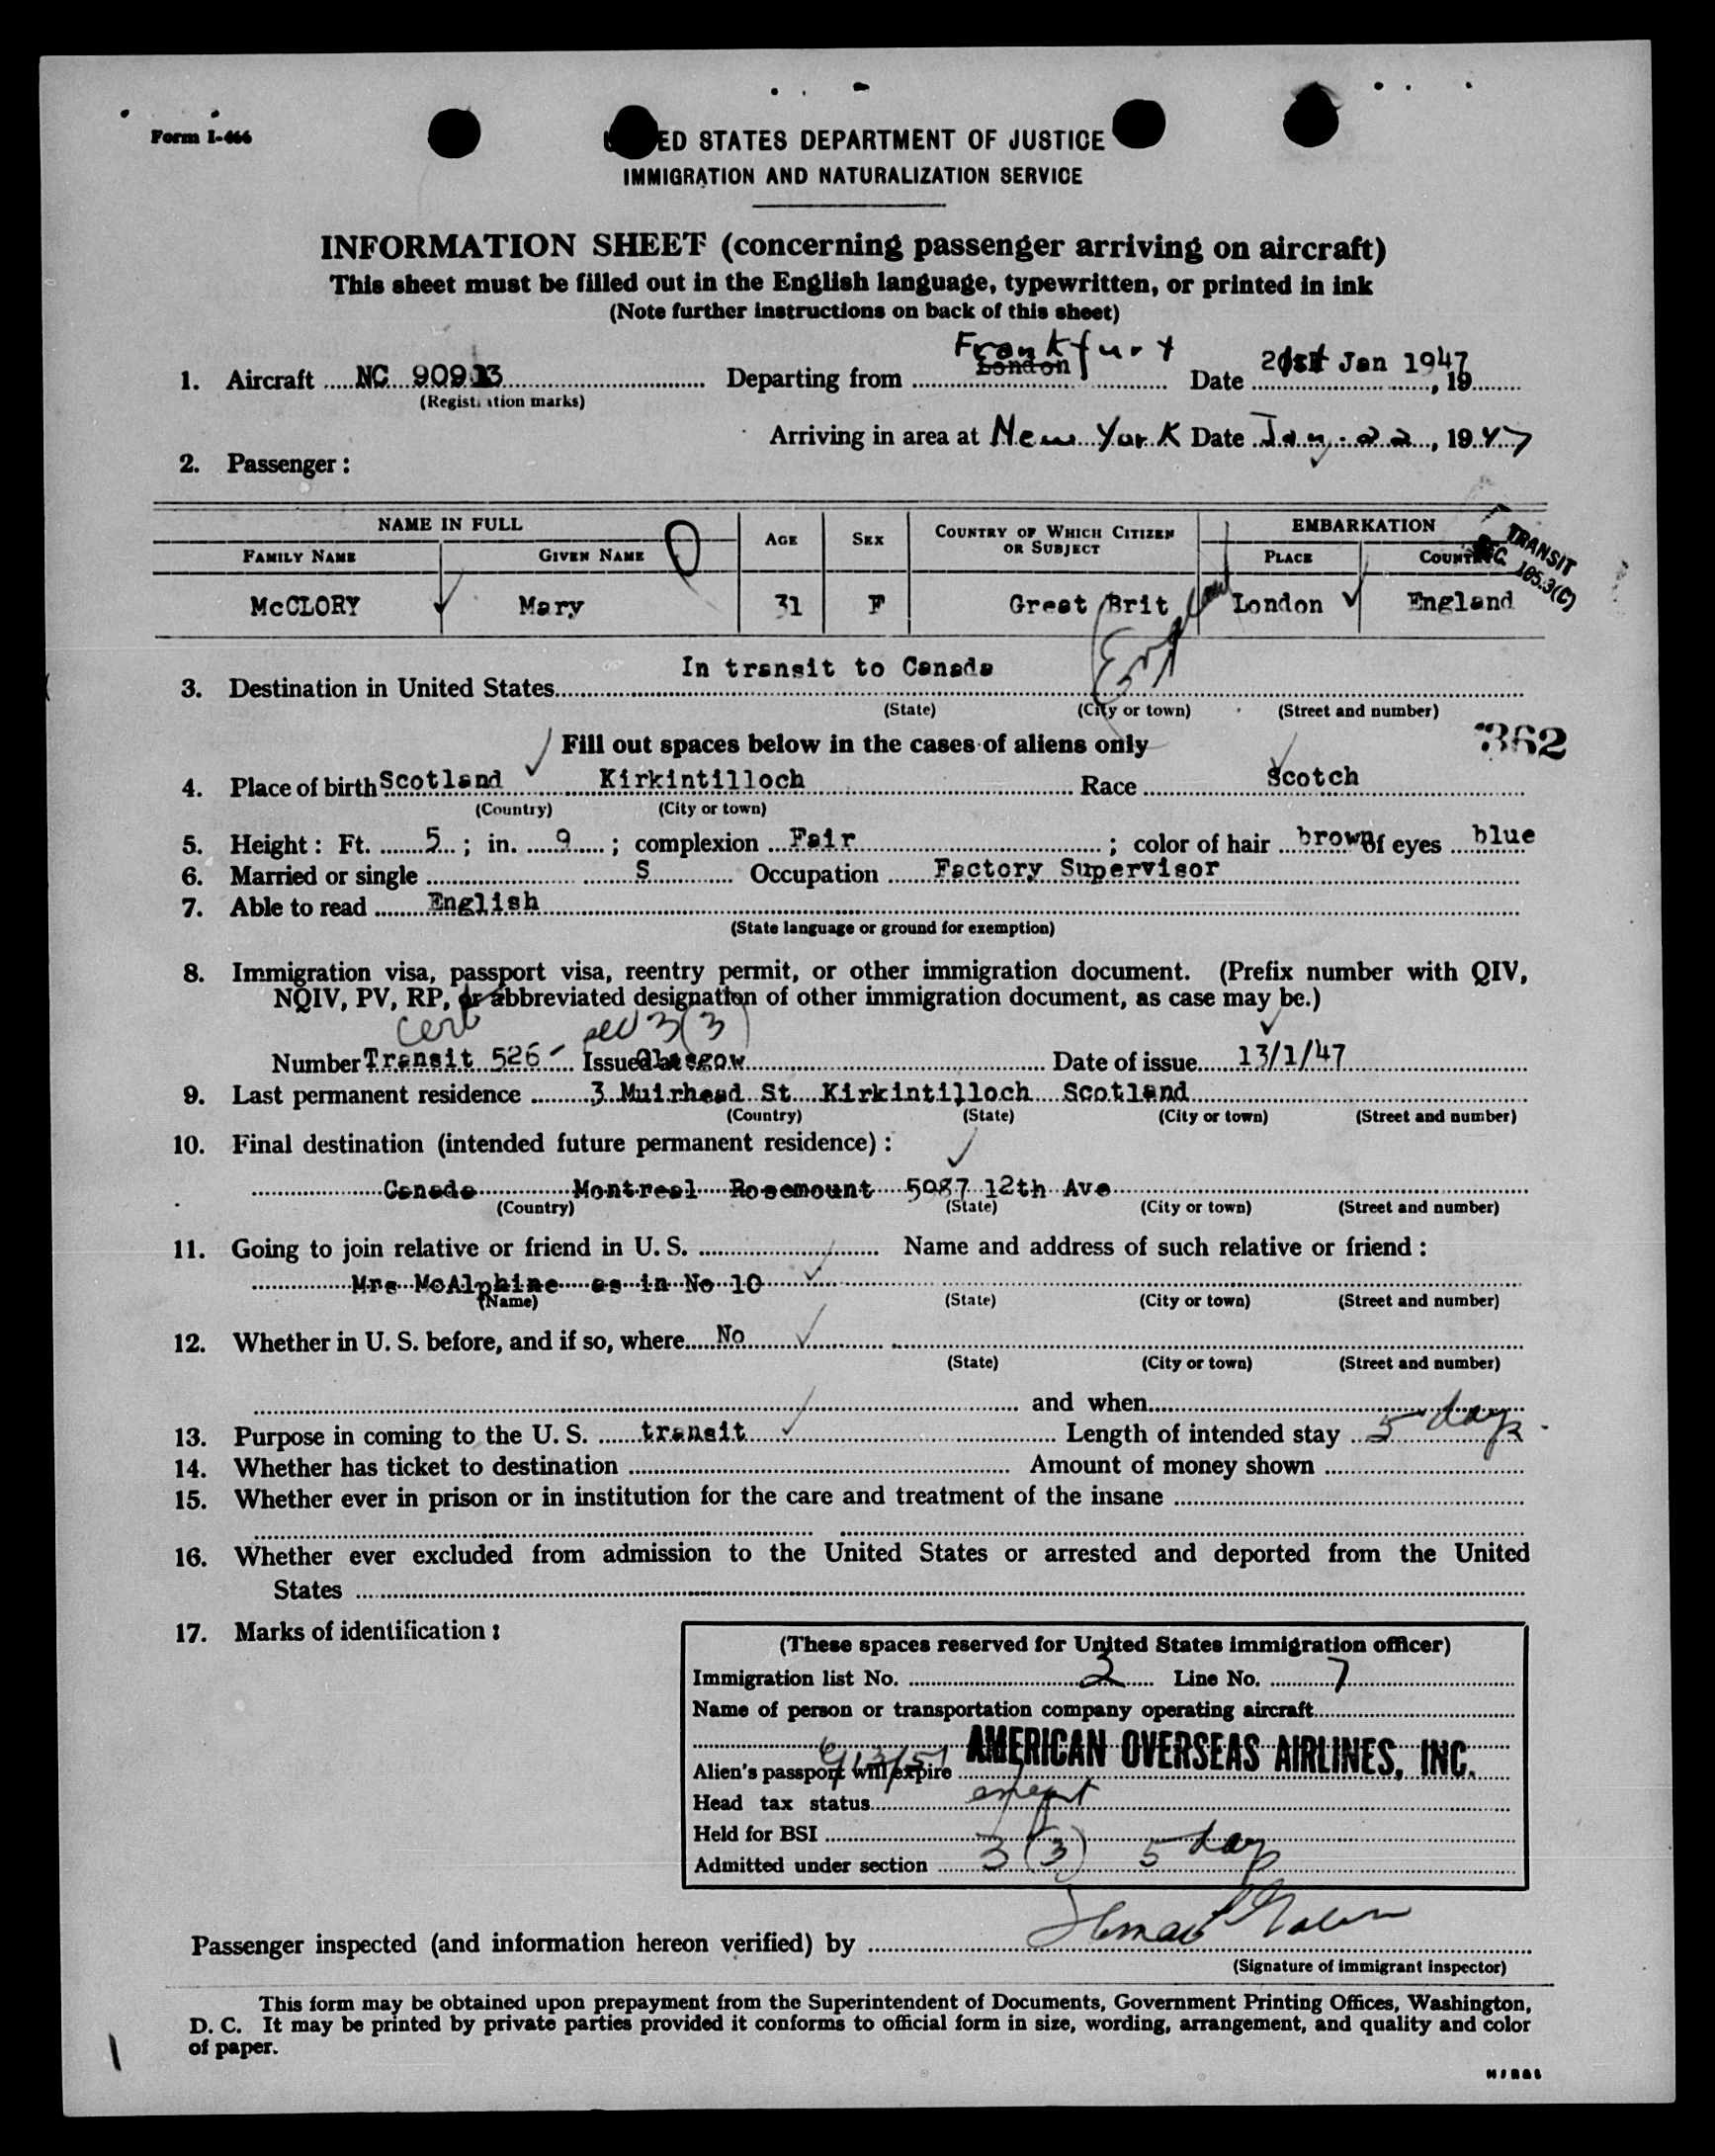 Form I-466
ED STATES DEPARTMENT OF JUSTICE
IMMIGRATION AND NATURALIZATION SERVICE
INFORMATION SHEET (concerning passenger arriving on aircraft)
This sheet must be filled out in the English language, typewritten, or printed in ink
(Note further instructions on back of this sheet)
Frankfurt
1. Aircraft NC 909 3 Departing from London Date Jan 1947, 19
(Registration marks)
Arriving in area at New York Date Jan. 22, 1947
2. Passenger:
NAME IN FULL AGE SEX COUNTRY OF WHICH CITIZEN OR SUBJECT EMBARKATION
FAMILY NAME GIVEN NAME PLACE COUNTRY
TRANSIT
SEC 105.3(C)
McCLORY Mary 31 F Great Brit London England
England
In transit to Canada
3. Destination in United States
(State) (City or town) (Street and number)
362
Fill out spaces below in the cases of aliens only
4. Place of birth Scotland Kirkintilloch Race Scotch
(Country) (City or town)
5. Height: Ft. 5; in. 9; complexion Fair; color of hair brown of eyes blue
6. Married or single S Occupation Factory Supervisor
7. Able to read English
(State language or ground for exemption)
8. Immigration visa, passport visa, reentry permit, or other immigration document. (Prefix number with QIV,
NQIV, PV, RP, or abbreviated designation of other immigration document, as case may be.)
Cert sec 3(3)
Number Transit 526 Issued at Glasgow Date of issue 13/1/47
9. Last permanent residence 3 Muirhead St Kirkintilloch Scotland
(Country) (State) (City or town) (Street and number)
10. Final destination (intended future permanent residence):
Canada Montreal Rosemount 5087 12th Ave
(Country) (State) (City or town) (Street and number)
11. Going to join relative or friend in U. S. Name and address of such relative or friend:
Mrs McAlphine as in No 10
(Name) (State) (City or town) (Street and number)
12. Whether in U. S. before, and if so, where No
(State) (City or town) (Street and number)
and when
13. Purpose in coming to the U. S. transit Length of intended stay 5 days
14. Whether has ticket to destination Amount of money shown
15. Whether ever in prison or in institution for the care and treatment of the insane
16. Whether ever excluded from admission to the United States or arrested and deported from the United
States
17. Marks of identification:
(These spaces reserved for United States immigration officer)
Immigration list No. 2 Line No. 7
Name of person or transportation company operating aircraft
AMERICAN OVERSEAS AIRLINES, INC.
Alien's passport will expire
Head tax status exempt
Held for BSI
Admitted under section 3(3) 5 day
Passenger inspected (and information hereon verified) by
(Signature of immigrant inspector)
This form may be obtained upon prepayment from the Superintendent of Documents, Government Printing Offices, Washington,
D. C. It may be printed by private parties provided it conforms to official form in size, wording, arrangement, and quality and color
of paper.